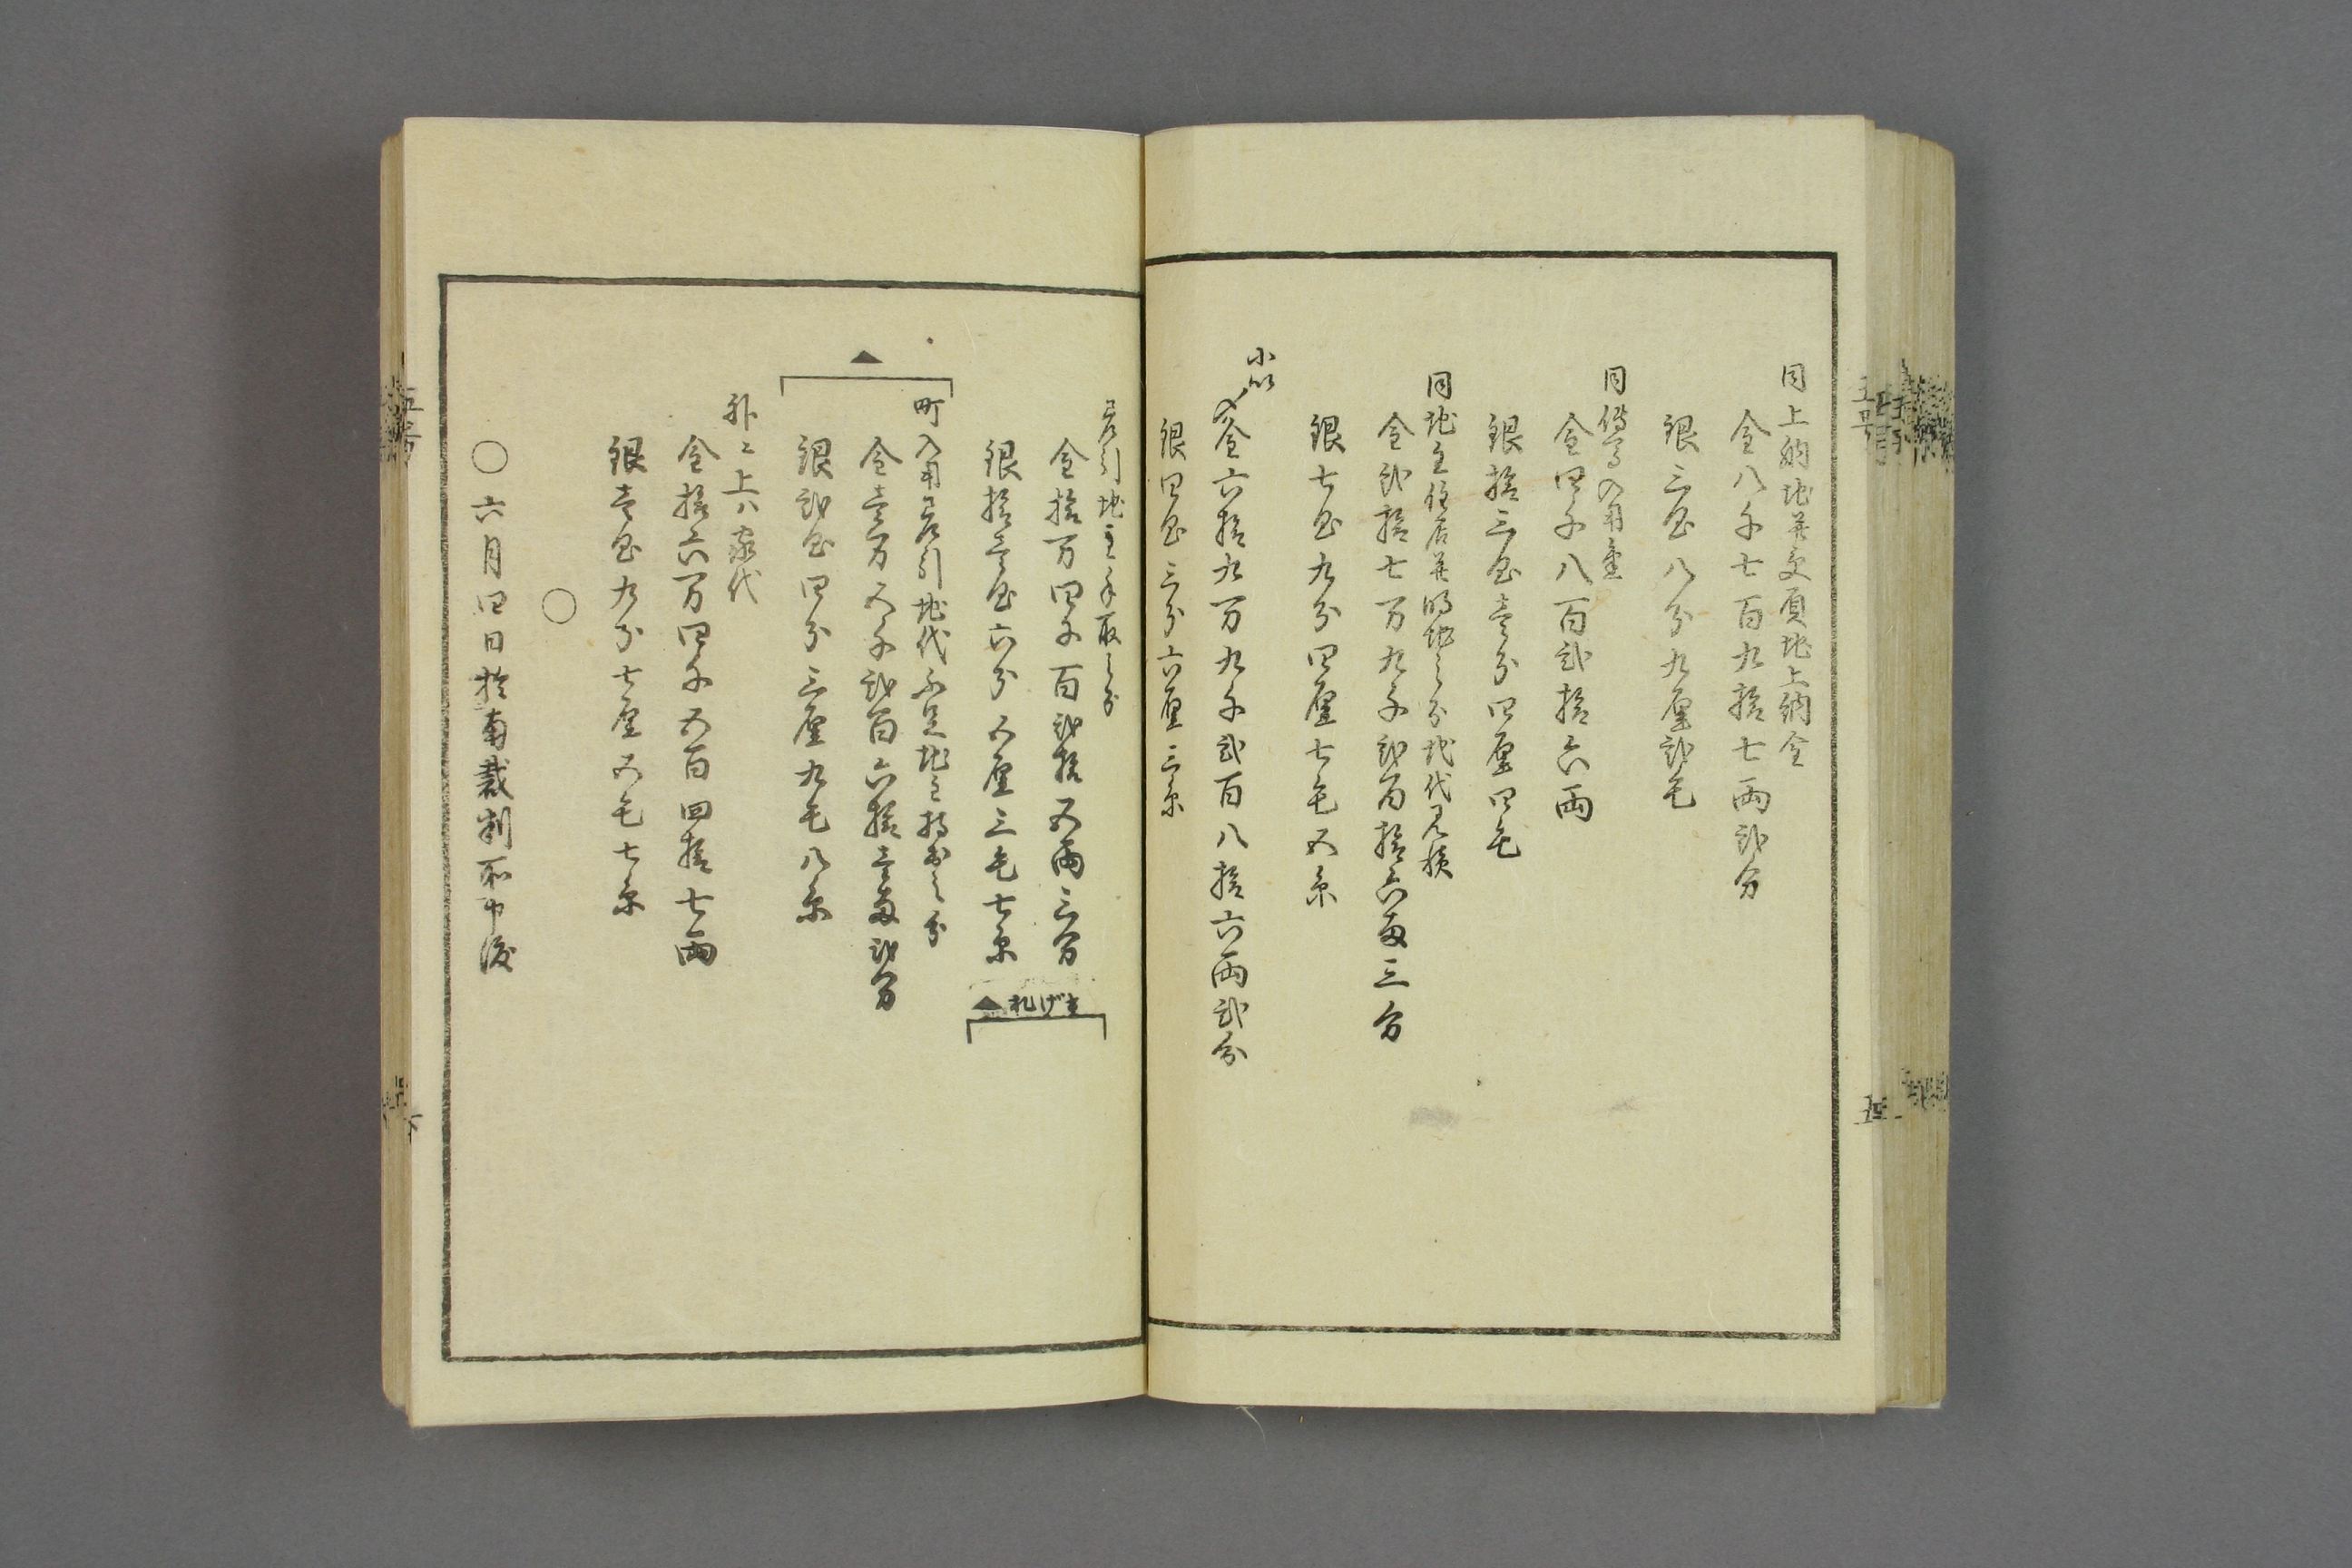 同上納地并交〆地上納金
金八千七百九拾七両弐分
銀三匁八分九厘弐毛
同伝馬入用金
金四千八百弐拾六両
銀拾三匁壱分四厘四毛
同地主住居并明地之分地代見積
金弐拾七万九千弐百拾六両三分
銀七匁九分四厘七毛五糸
小以
金六拾九万九千弐百八拾六両弐分
銀四匁三分六厘三糸
差引地主手取之分
金拾万四千百弐拾五両三分
銀拾壱匁六分五厘三毛七糸
町入用差引地代不足地主持出之分
金壱万五千弐百六拾壱両弐分
銀弐匁四分三厘九毛八糸
外ニ上ハ家代
金拾六万四千五百四拾七両
銀壱匁九分七厘五毛七糸
○
○六月四日於南裁判所申渡